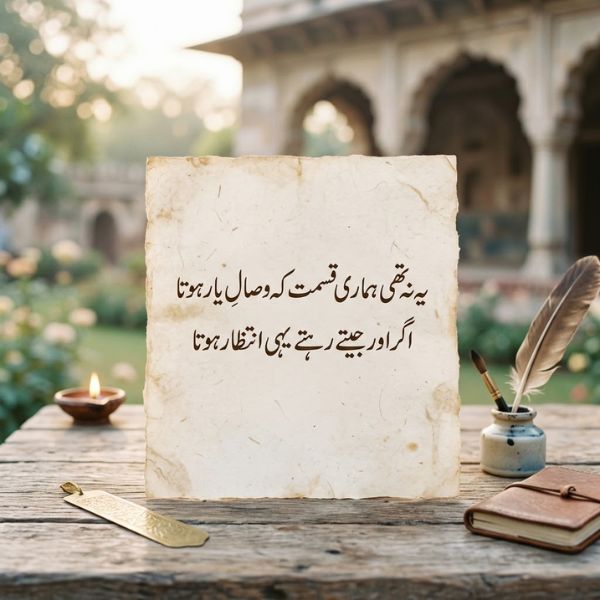 یہ نہ تھی ہماری قسمت کہ وصالِ یار ہوتا
اگر اور جیتے رہتے یہی انتظار ہوتا